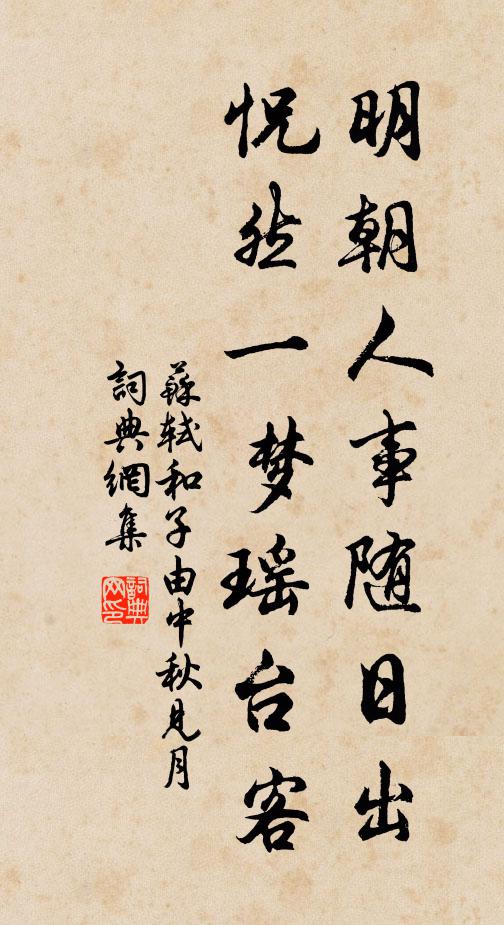 明朝人事随日出
怳然一梦瑶台客
蘇轼和子由中秋見月
詞典網集
詞典网印